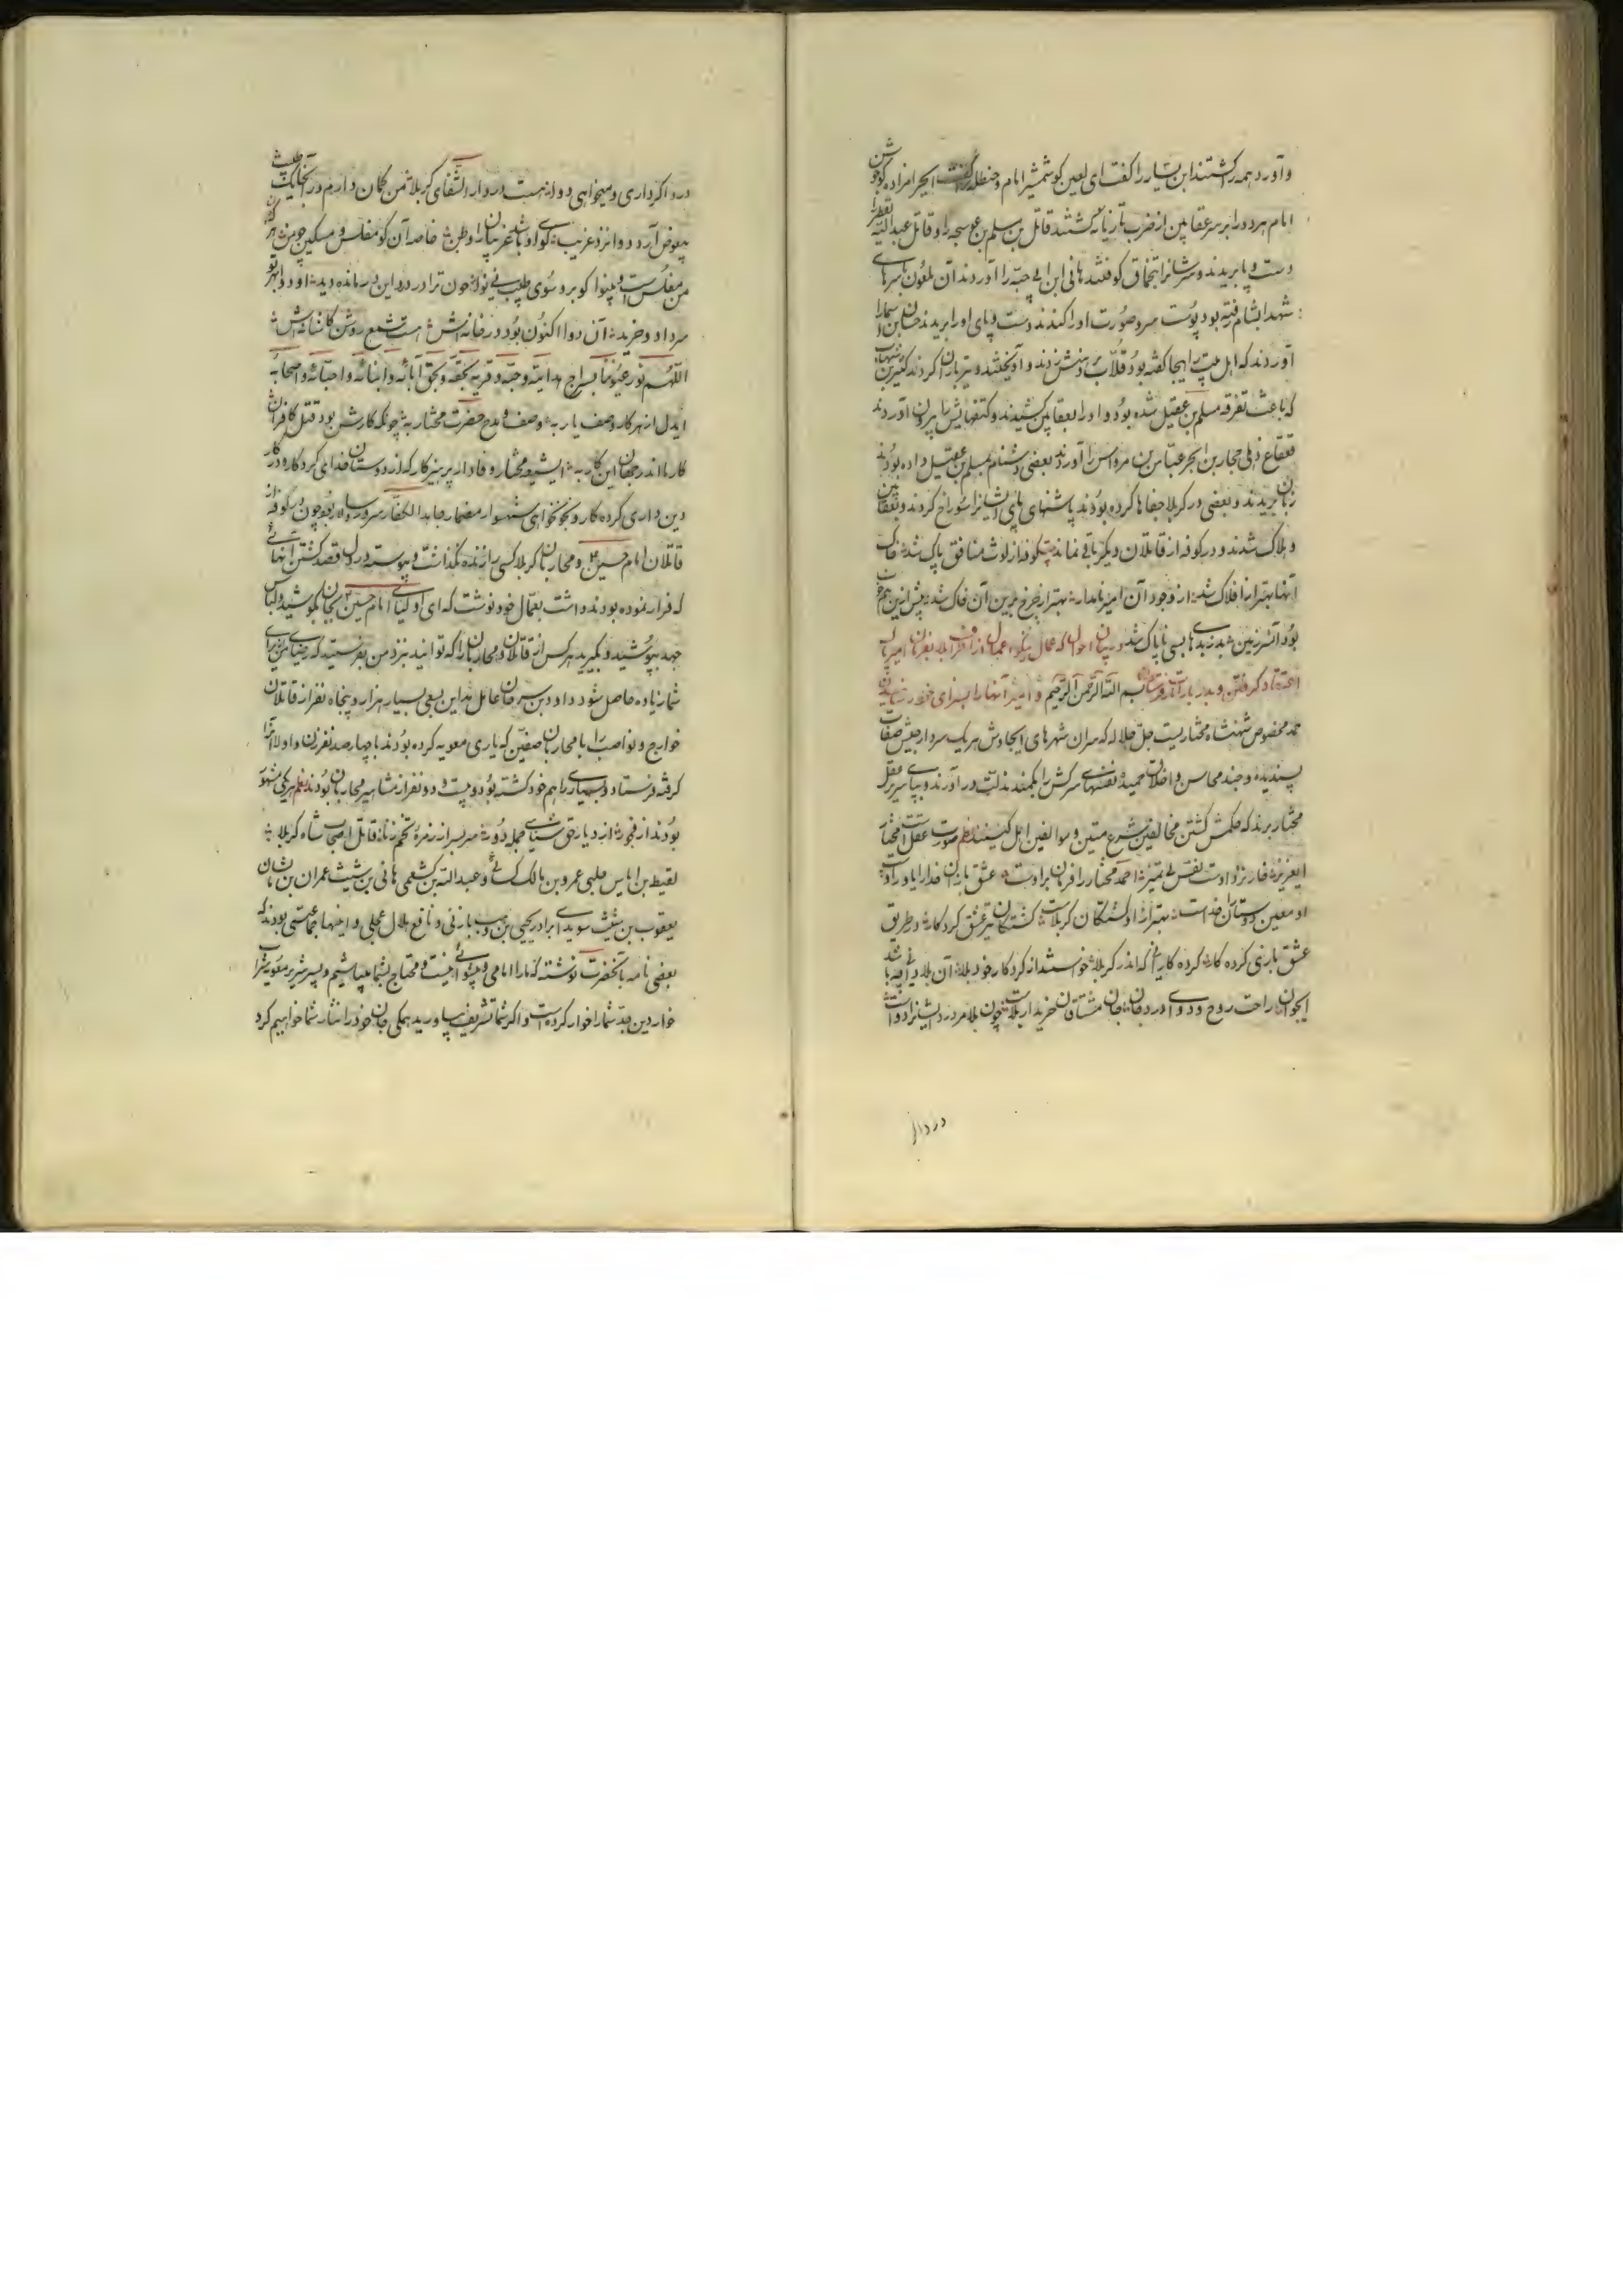 وآورد همه را کشتند ابن بسیار را گفت ای لعین کو شمشیر امام و حنظله گفت ایحرامزاده کو جوشن
امام هر دو را بر سر عقابین از ضرب تازیانه کشتند قاتل بن مسلم بن عوسجه را و قاتل عبدالله
دست و پا بریدند و سرشانرا بخناق کوفتند هانی ابن ابی حیه را آوردند آن ملعون با سرهای
شهدا بشام رفته بود پوست سر و صورت او را کندند دست و پای او را بریدند
آوردند که اهل بیت را ایجا گفته بود قلاب بر بدنش زدند و آویختند و تیرباران کردند
که باعث تفرقه مسلم بن عقیل شده بود و او را بعقابین کشیدند و کتفهایش را بیرون آوردند
قعقاع ذهلی حجار بن ابجر عباس بن مرداس را آوردند بعضی دشنام بمسلم بن عقیل داده بودند
زبان بریدند و بعضی در کربلا جفاها کرده بودند پاشنهای پای ایشانرا سوراخ کردند و بعقابین
و هلاک شدند و در کوفه از قاتلان دیگر باقی نماند کوفه از لوث منافق پاک شد خاک
آنها بهتر از افلاک شد از وجود آن امیر نامدار بهتر از چرخ برین آن خاک شد پیش ازین هم خوب
بود آنسرزمین شد ز بدها بسی ناپاک شد در بیان احوال که عمال نیکو اعمال از اطراف بلاد بفرمان امیر
اعتماد گرفتن و بدربار فرستادن بسم الله الرحمن الرحیم و امیر آنها را بسزای خود رسانیدن
حمد مخصوص شهنشاه مختاریست جل جلاله که سران شهرهای ایجادش هر یک سردار جیش صفات
پسندیده و جند محاسن و اخلاق حمیده نفسهای سرکش را بکمند مذلت درآورند و بپای سریر عقل
مختار برند که حکمش کشتن مخالفین شرع متین و موالفین اهل کینند نظم صورت عقلست مختار
ایعزیز خار نزد اوست نفس بی تمیز احمد مختار را فرمان براوست عشق بازان خدا را یاور اوست
او معین دوستان خداست بهتر از او کشتگان کربلاست کشتگان تیر عشق کردکار در طریق
عشق بازی کرده کار کرده کاریرا که اندر کربلا خواستند از کردکار خود بلا آن بلائی شد
ایجوان راحت روح و دوای درد جان جان مشتاقان خریدار بلاست چون بلا مر درد ایشانرا دواست
در دار
درد اگر داری و میخواهی دوا هست در دار الشفای کربلا من گمان دارم در آنجا یک طبیب
بیعوض آرد دوا نزد غریب گوی او باشد غریبانرا وطن خاصه آن کو مفلس و مسکین چو من
من مفلس است و بینوا کو برو سوی طبیب نی نوا چون ترا در درد این درمانده دید او دوا بهر تو
سر داد و خرید آن دوا اکنون بود در خانه‌اش هست شمع روشن کاشانه‌اش
اللهم نور عیوننا بسراج هدایته وحبه وقربه بحقه وبحق آبائه وابنائه واحبائه واصحابه
ایدل از هر کار وصف یار به وصف و مدح حضرت مختار به چونکه کارش بود قتل کافران
کارها اندر جهان این کار به ایشیعه مختار وفادار پرهیزکار که از دوستان خدای کردکار و در کار
دین داری کرده کار و نیکوخوای شهسوار مضمار جاهد الکفار سرور سپاه چون در کوفه از
قاتلان امام حسین و محاربان کربلا کسی را زنده نگذاشت و پیوسته در دل قصد کشتن آنهائی
که فرار نموده بودند داشت بعمال خود نوشت که ای اولیای امام حسین بجان بکوشید و لباس
جهد بپوشید و بگیرید هر کس از قاتلان و محاربان را که توانید نزد من بفرستید که رضای من برای
شما زیاده حاصل شود داود بن سرحان عامل مداین بسعی بسیار هزار و پنجاه نفر از قاتلان
خوارج و نواصب را با محاربان صفین که یاری معویه کرده بودند با چهارصد نفر زن و اولاد آنها
گرفته فرستاد و بسیاری را هم خود کشته بود و بیست و دو نفر از مشاهیر محاربان بودند نظم هر یکی مشهور
بودند از فجور از دیار حق شناسی جمله دور سربسر از زمره تخم زنا قاتل اصحاب شاه کربلا
لقیط بن ایاس حلبی عمرو بن مالک کسائی و عبدالله بن کشعمی هانی بن شیث عمران بن شان
یعقوب بن شیث سویدای برادر یحیی بن وهب بازنی و نافع هلال عجلی و اینها جماعتی بودند که
بعضی نامه بآنحضرت نوشته که ما را امامی و پیشوائی نیست و محتاج بشما میباشیم و پسر شریر معویه شما را
خوار دین جد شما را خوار کرده است و اگر شما تشریف بیاورید همگی جان خود را نثار شما خواهیم کرد